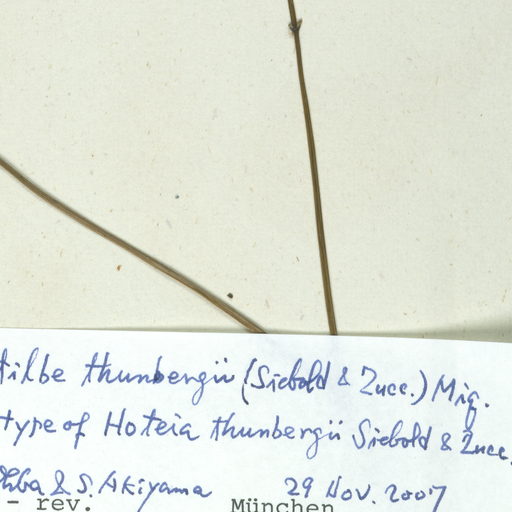 tilbe thunbergii (Siebold & Zucc.) Miq.
type of Hoteia thunbergii Siebold & Zucc.
hba & S. Akiyama 29 Nov. 2007
- rev. München